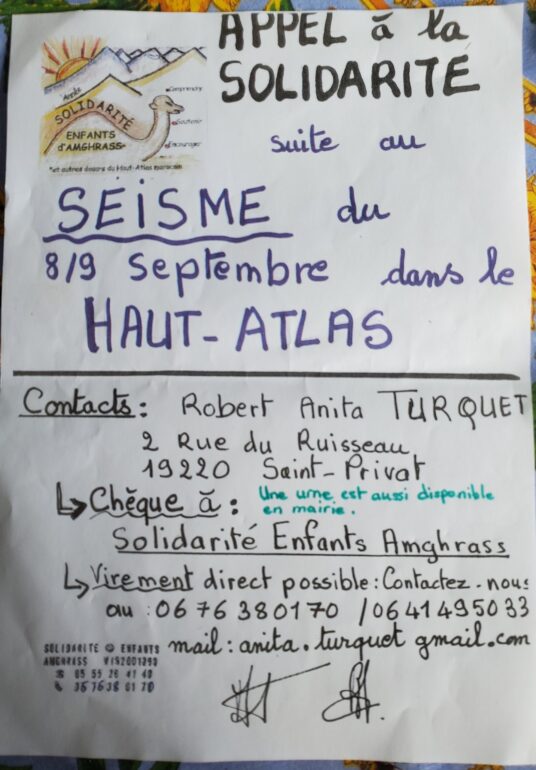 APPEL à la
SOLIDARITE
Après
SOLIDARITÉ
ENFANTS
d'AMGHRASS
Comprendre
Soutenir
Encourager
*et autres douars du Haut-Atlas marocain
suite au
SEISME du
8/9 Septembre dans le
HAUT-ATLAS
Contacts : Robert Anita TURQUET
2 Rue du Ruisseau
19220 Saint-Privat
↳ Chèque à : Une urne est aussi disponible
en mairie.
Solidarité Enfants Amghrass
↳ Virement direct possible : Contactez-nous
au : 06 76 38 01 70 / 06 41 49 50 33
mail : anita.turquet gmail.com
SOLIDARITE ENFANTS
AMGHRASS W192001290
05 55 28 41 49
06 76 38 01 70